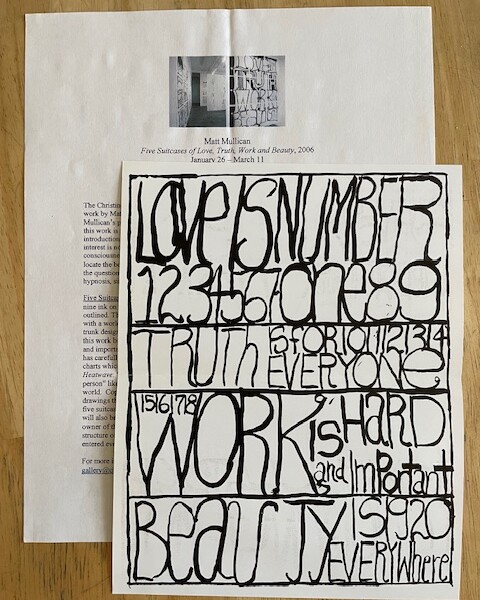 Matt Mullican
Five Suitcases of Love, Truth, Work and Beauty, 2006
January 26 – March 11
The Christine
work by Mat
Mullican's p
this work is
introduction
interest is no
consciousne
locate the be
the question
hypnosis, su
Five Suitcas
nine ink on
outlined. Th
with a work
trunk design
this work b
and importa
has carefull
charts which
Heatwave.
person" like
world. Cop
drawings th
five suitcas
will also be
owner of th
structure o
entered eve
For more i
gallery@c
LOVE IS NUMBER
1234567one89
TRUTH IS FOR 1011121314
EVERYONE,
15161718
WORK is HARD
and ImPortant
BEAUTY IS 1920
EVERYWhere